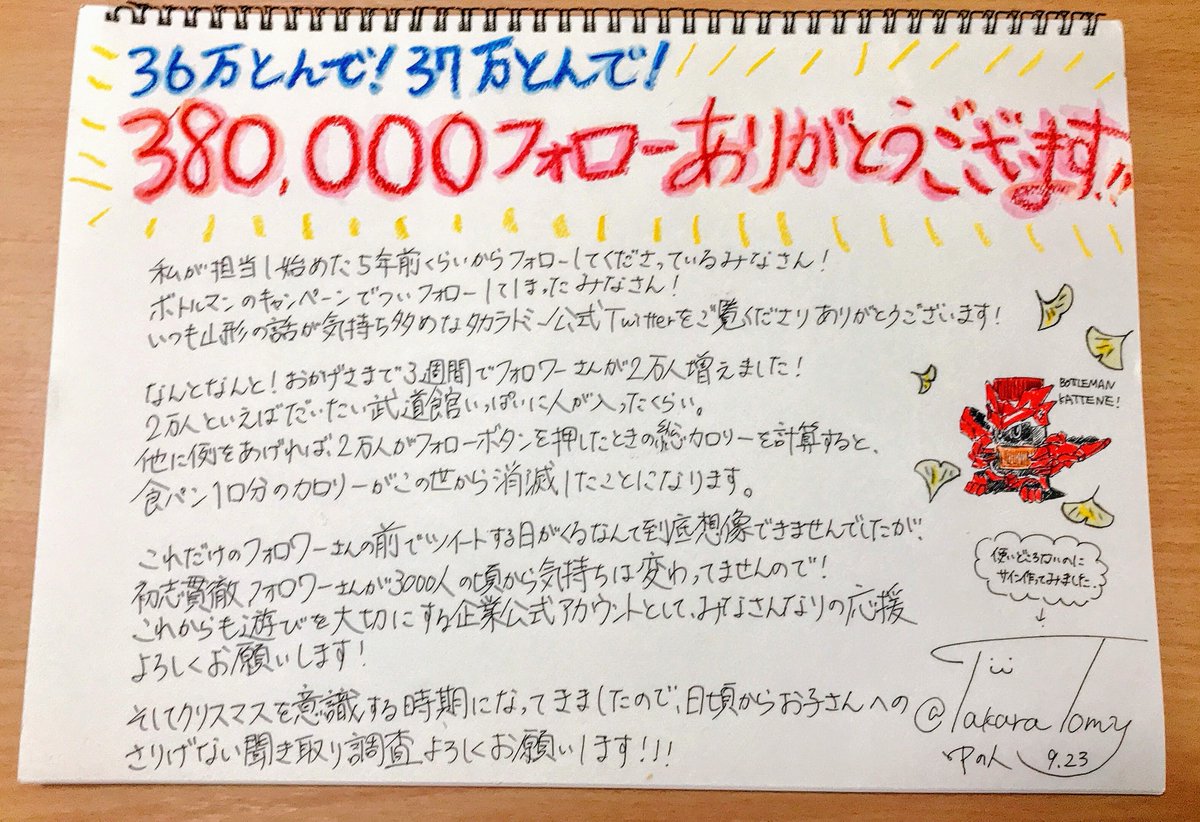 36万とんで!37万とんで!
380,000フォローありがとうございます!!
私が担当し始めた5年前くらいからフォローしてくださっているみなさん!
ボトルマンのキャンペーンでついフォローしてしまったみなさん!
いつも山形の話が気持ち多めなタカラトミー公式Twitterをご覧くださりありがとうございます!
なんとなんと!おかげさまで3週間でフォロワーさんが2万人増えました!
2万人といえばだいたい武道館いっぱいに人が入ったくらい。
他に例をあげれば、2万人がフォローボタンを押したときの総カロリーを計算すると、
食パン1口分のカロリーがこの世から消滅したことになります。
これだけのフォロワーさんの前でツイートする日がくるなんて到底想像できませんでしたが、
初志貫徹フォロワーさんが3000人の頃から気持ちは変わってませんので!
これからも遊びを大切にする企業公式アカウントとして、みなさんなりの応援
よろしくお願いします!
そしてクリスマスを意識する時期になってきましたので、日頃からお子さんへの
さりげない聞き取り調査よろしくお願いします!!!
BOTLEMAN
KATTENE!
使いどころないのに
サイン作ってみました。
↓
@Takara Tomy
中の人 9.23